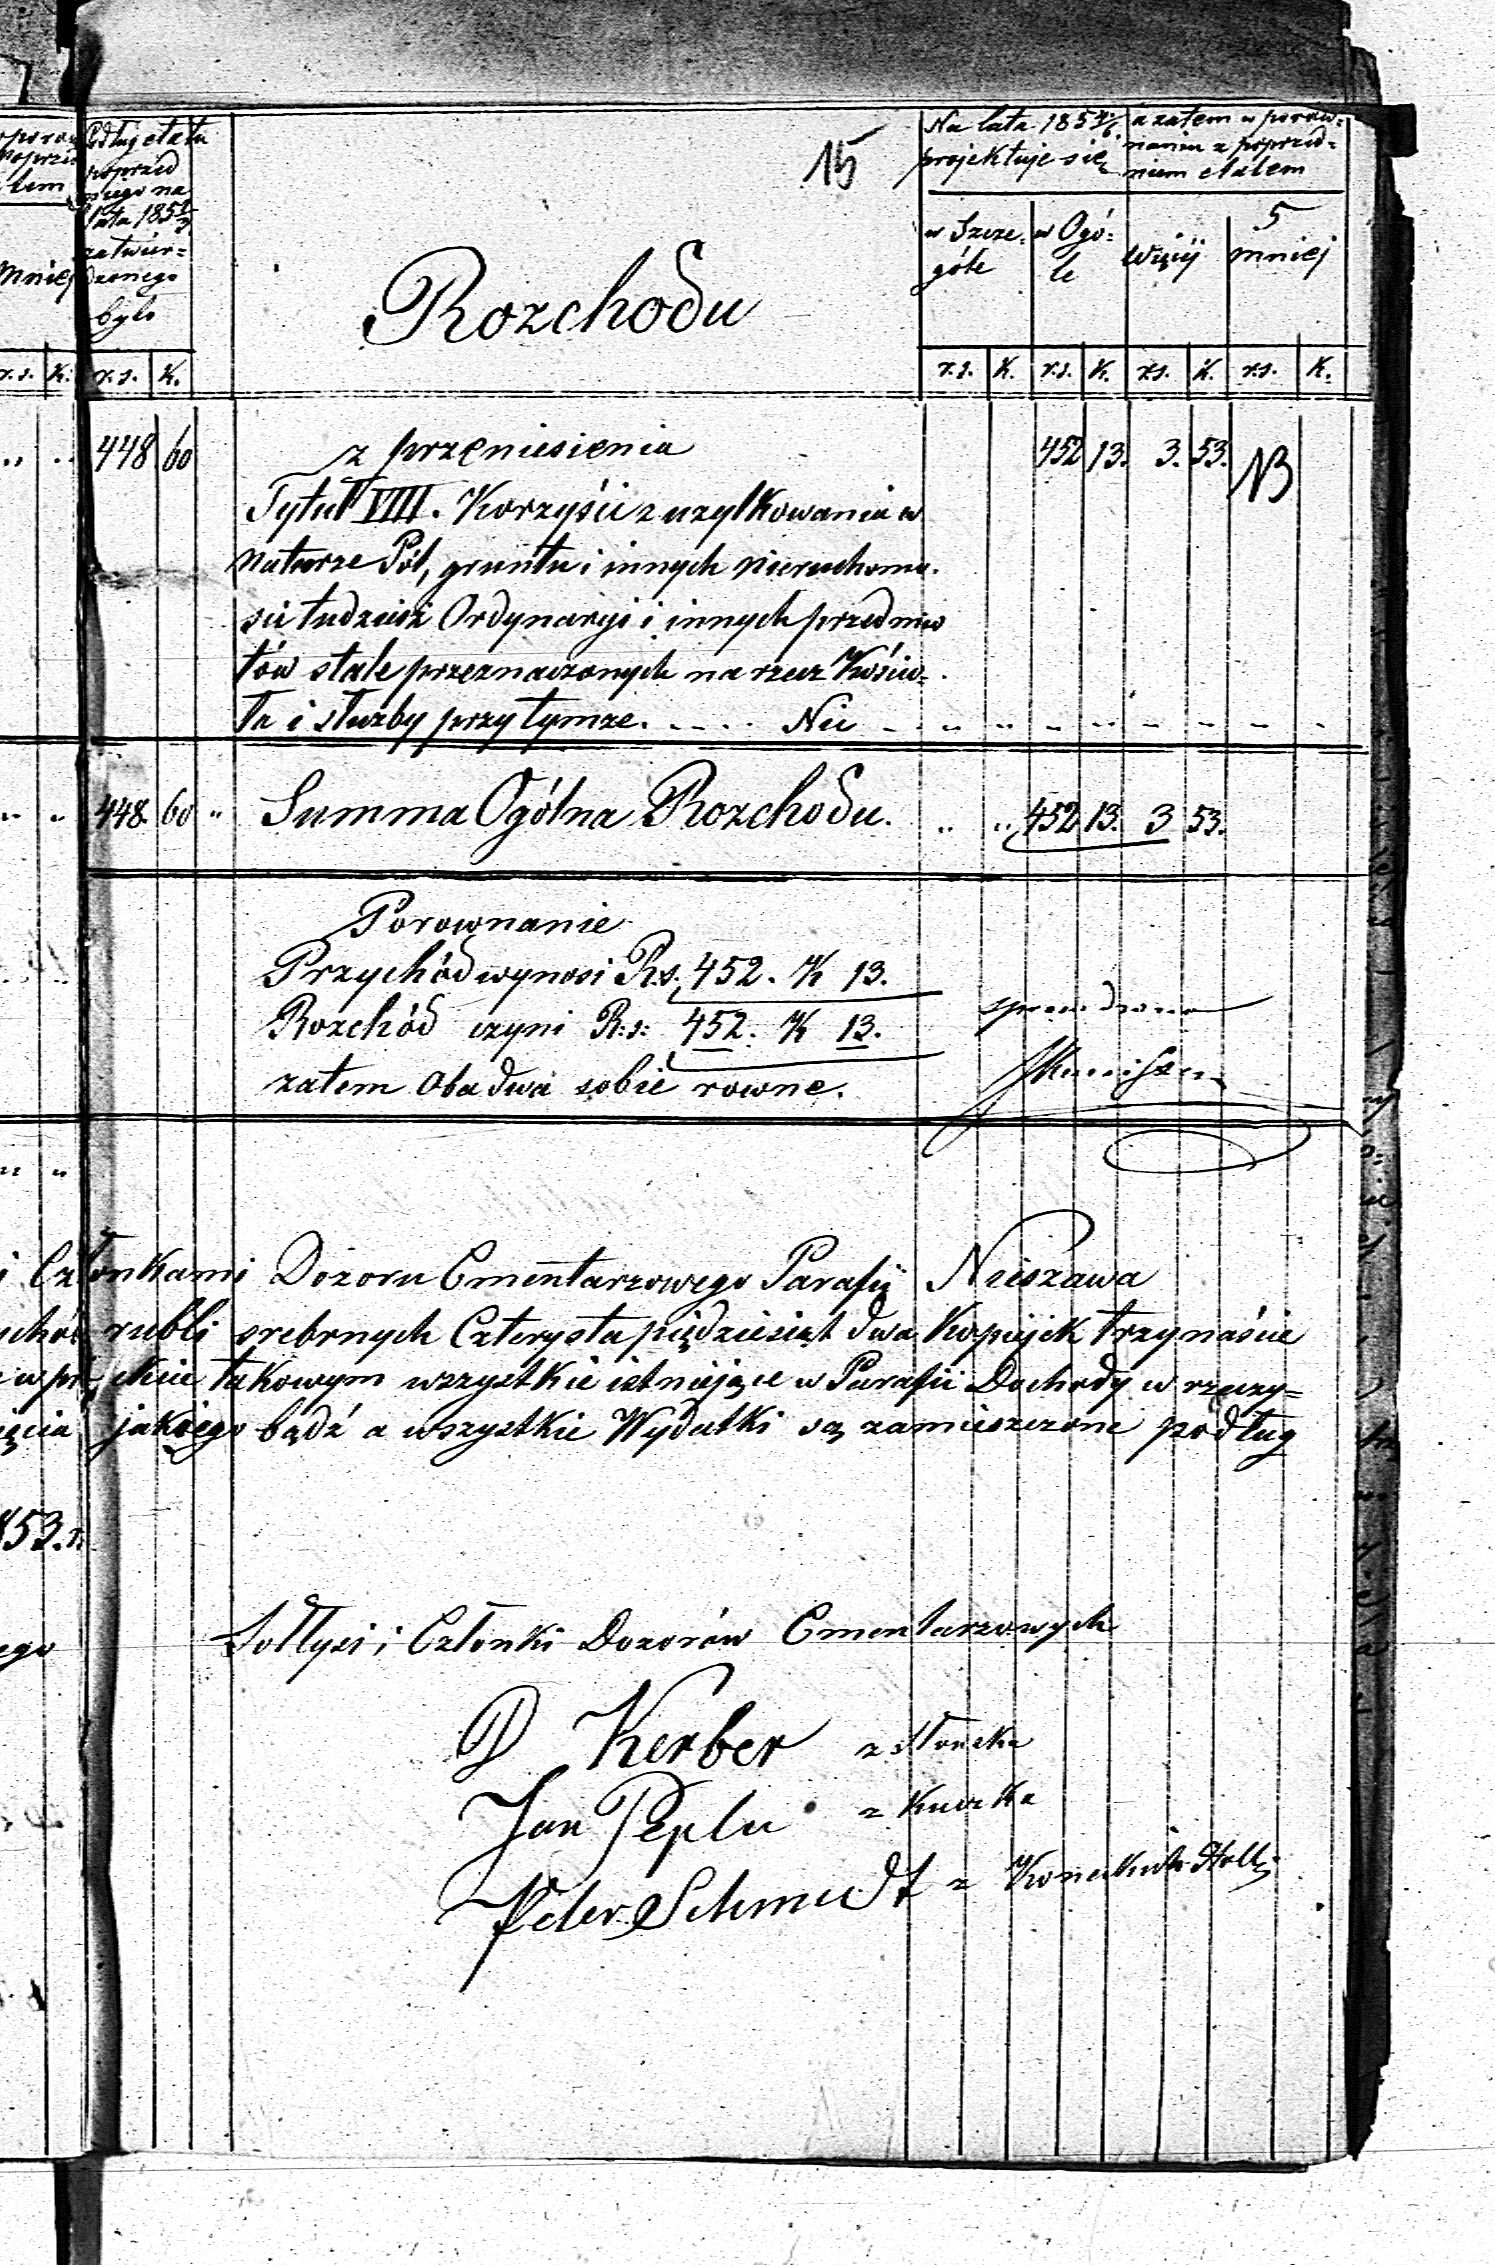 podług etatu
poprzed
niego na
lata 185 1/3
zatwier=
dzonego
było
r.s. K.
15
Rozchodu
Na lata 185 4/6.
projektuje się
a zatem w porów=
naniu z poprzed=
niem etatem
w Szcze=
góle
w Ogó=
le
więcej
5
mniej
r.s. K. r.s. K. r.s. K. r.s. K.
448 60 z przeniesienia 452 13. 3. 53.
NB
Tytuł VIII. Korzyści z uzytkowania w
naturze Pól, gruntu i innych nieruchomo.
ści tudzież Ordynaryi i innych przedmio
tów stale przeznaczonych na rzecz Kościo=
ła i służby przy tymze. . . . . Nic
448. 60 " Summa Ogólna Rozchodu. 452 13. 3 53.
Porownanie
Przychód wynosi Rs. 452. K 13.
Rozchód czyni R:s: 452. K 13.
zatem Obadwa sobie rowne.
sprawdzono
i Członkami Dozoru Cmentarzowego Parafii Nieszawa
rubli srebrnych Czterysta piędziesiąt dwa Kopijek trzynaście
takowym wszystkie istniejące w Parafii Dochody w rzeczy=
jakiego bądź a wszystkie Wydatki są zamieszczone podług
853. r.
ego
Sołtysi i Członki Dozorów Cmentarzowych
D Kerber z Słońska
Jan Peplu z
Peter Schmidt z